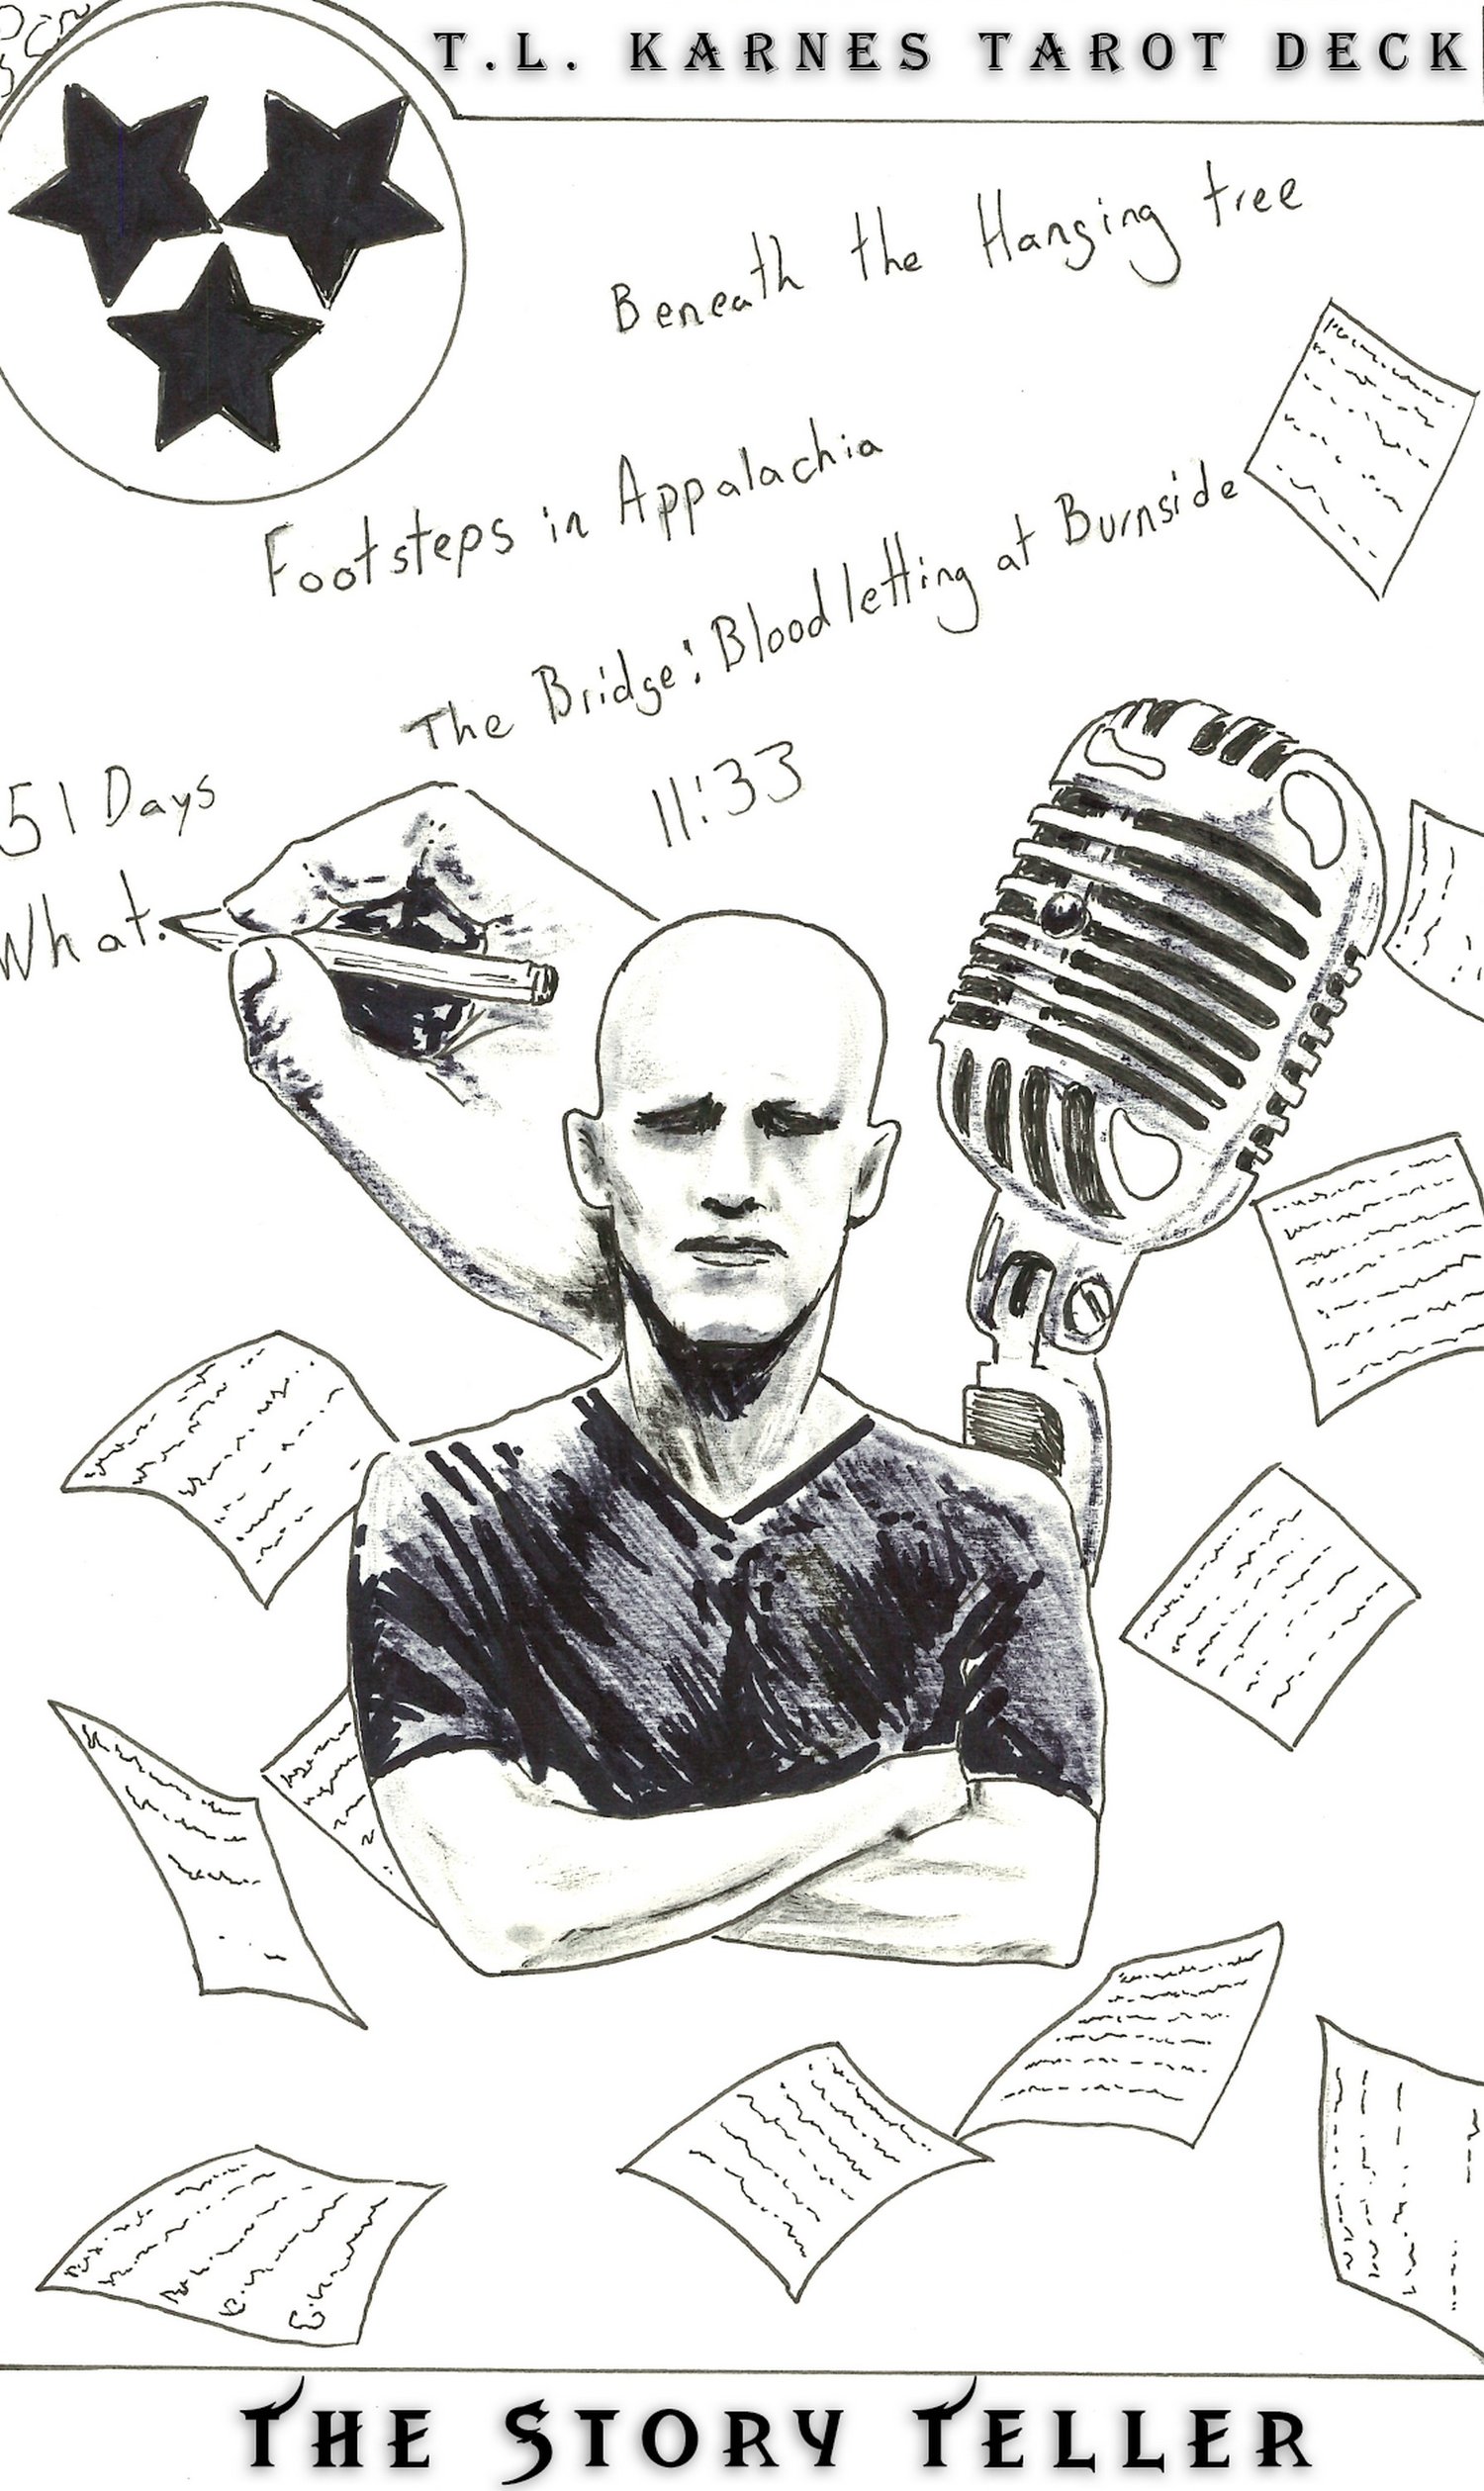 T.L. KARNES TAROT DECK
Beneath the Hanging tree
Footsteps in Appalachia
The Bridge: Bloodletting at Burnside
11:33
51 Days
What.
THE STORY TELLER